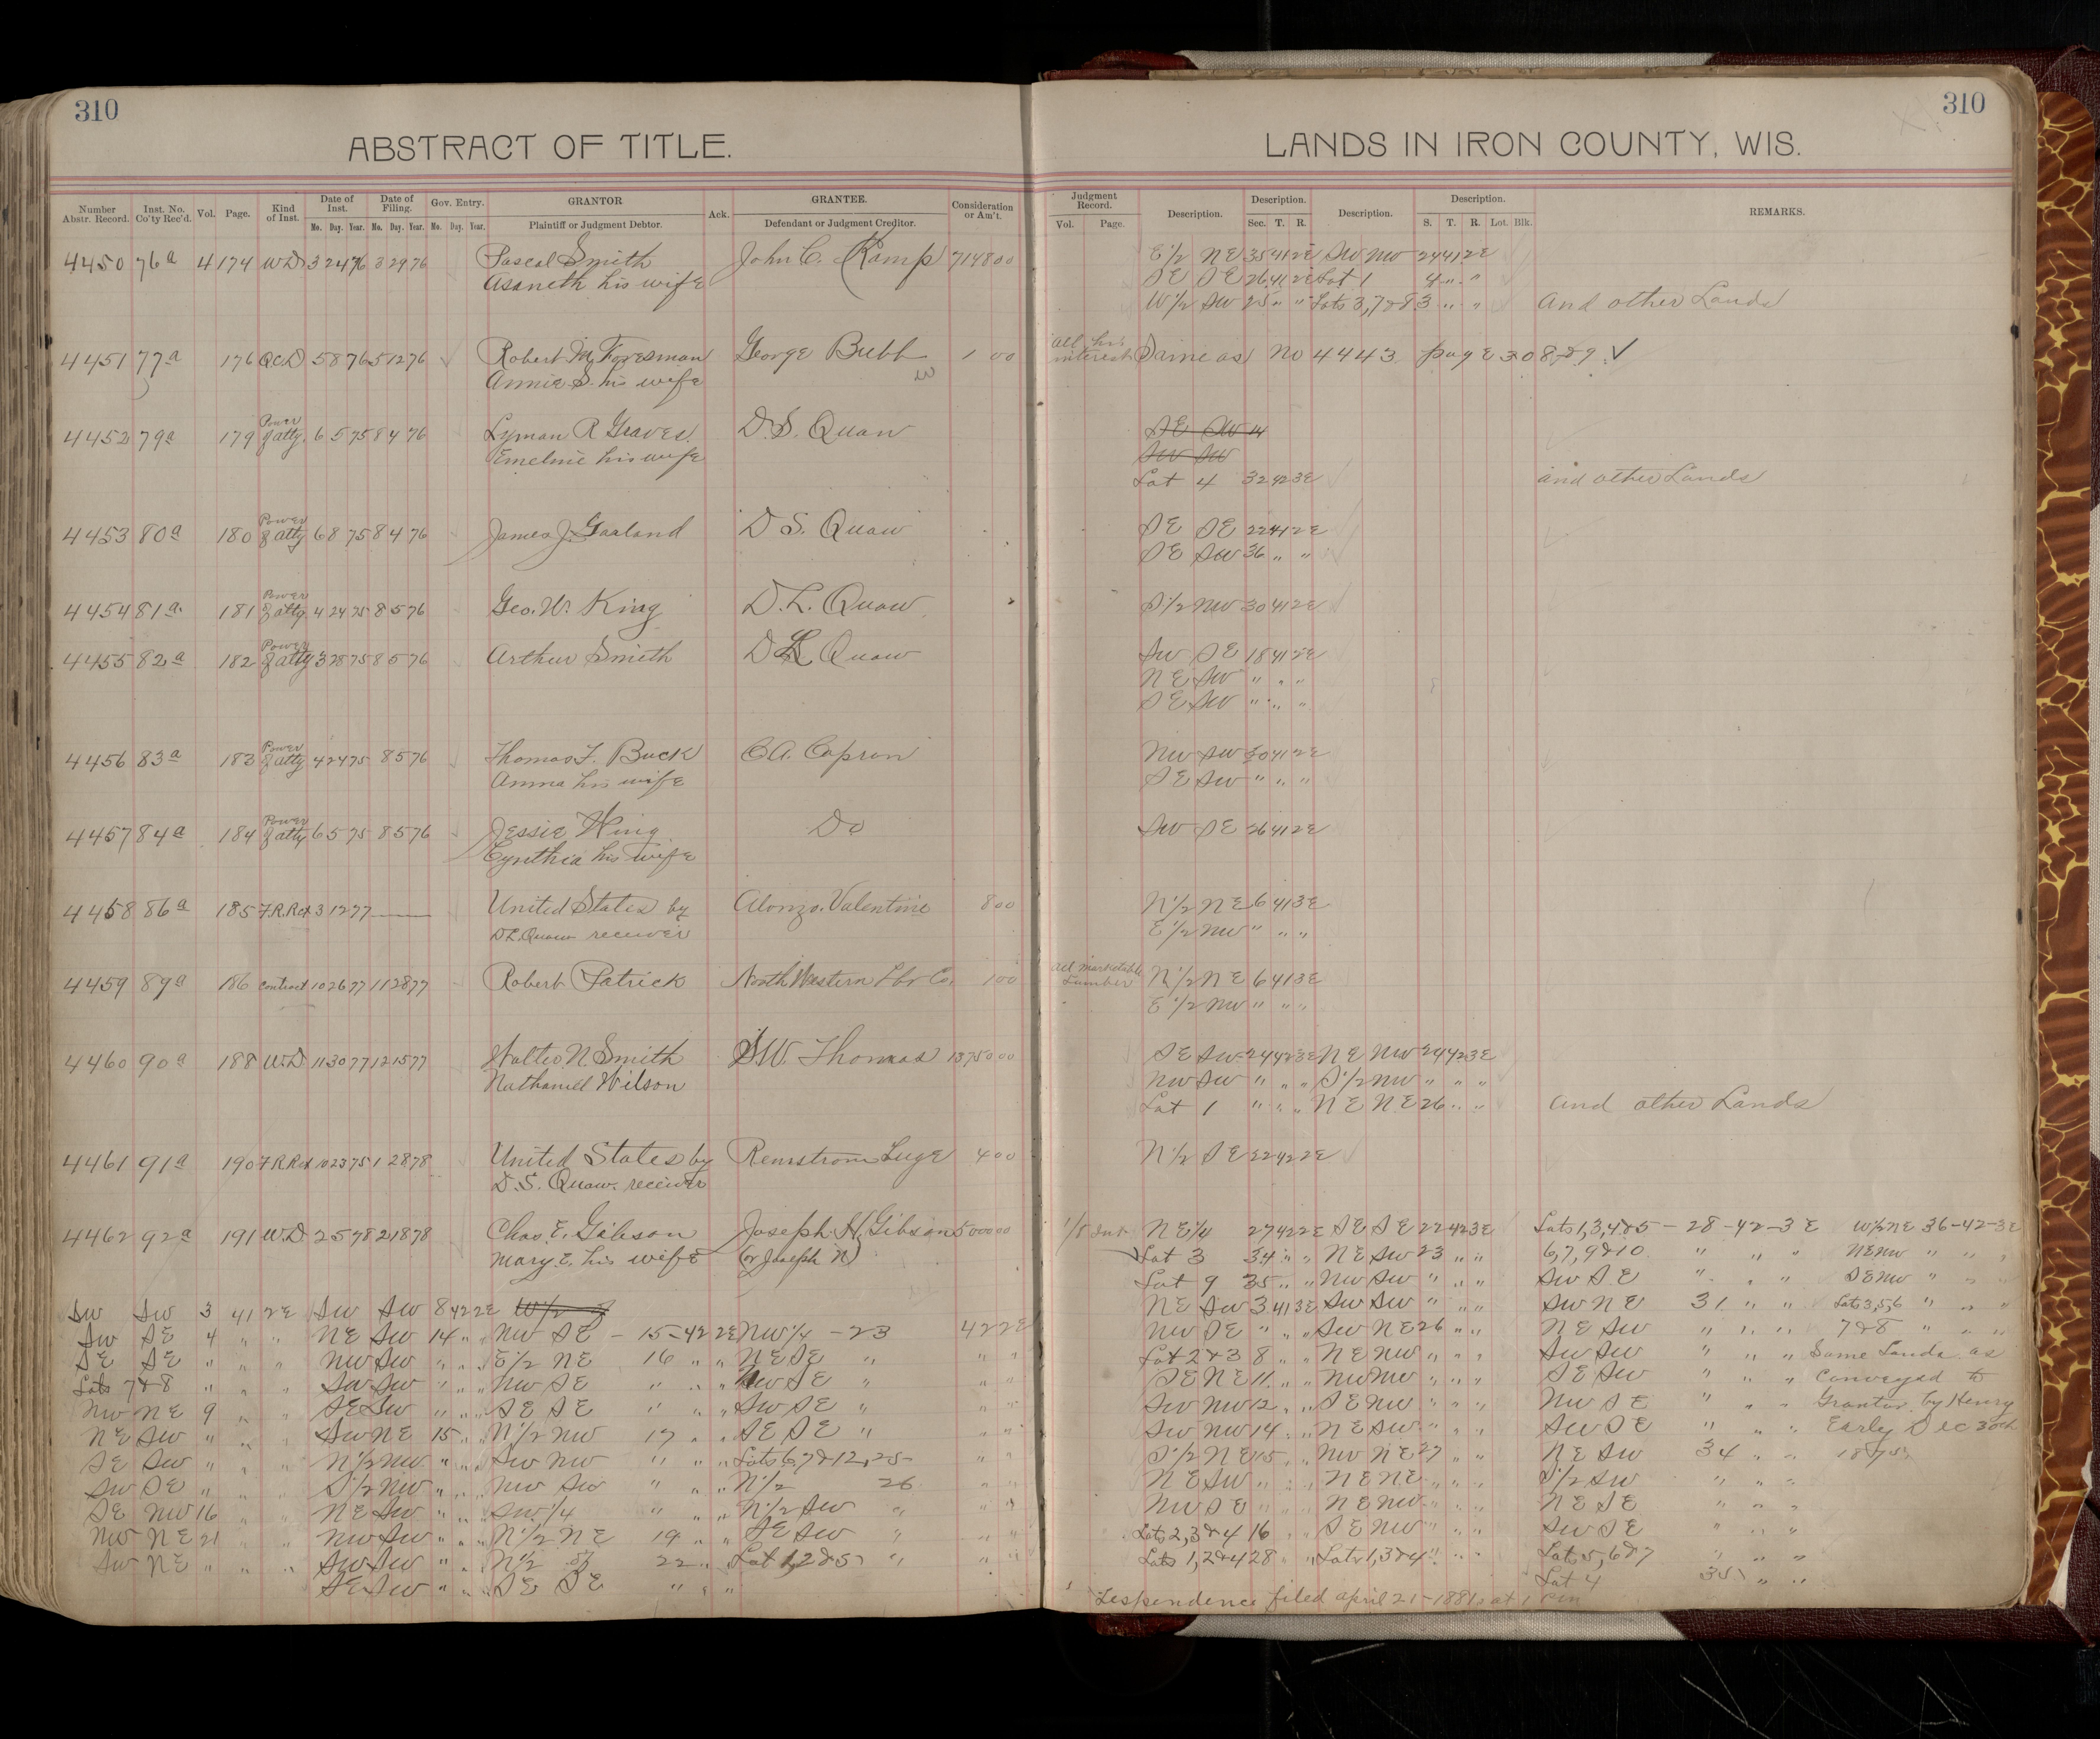 310
310
ABSTRACT OF TITLE.
LANDS IN IRON COUNTY, WIS.
Number Abstr. Record. Inst. No. Co'ty Rec'd. Vol. Page. Kind of Inst. Date of Inst. Date of Filing. Gov. Entry. GRANTOR Ack. GRANTEE. Consideration or Am't. Judgment Record. Description. Description. Description. Description. REMARKS.
Mo. Day. Year. Mo. Day. Year. Mo. Day. Year. Plaintiff or Judgment Debtor. Defendant or Judgment Creditor. Vol. Page. Sec. T. R. S. T. R. Lot. Blk.
4450 76a 4 174 W.D 3 24 76 3 29 76 Pascal Smith John C. Kamp 7148 00 E 1/2 NE 35 41 2E SW NW 24 41 2E
Asaneth his wife SE SE 26 41 2E Lot 1 4 " "
W 1/2 SW 25 " " Lots 3, 7 & 8 3 " " and other Lands
4451 77a 176 Q.C.D 5 8 76 5 12 76 Robert M. Foresman George Bubb 1 00 all his interest Same as No 4443 page 308 & 9 ✓
Annie S. his wife
4452 79a 179 Power of atty. 6 5 75 8 4 76 Lyman R Graves D. S. Quaw SE SW 14
Emeline his wife SW SW
Lot 4 32 42 3E and other Lands
4453 80a 180 Power of atty 6 8 75 8 4 76 James J. Garland D S. Quaw SE SE 22 41 2E
SE SW 36 " "
4454 81a 181 Power of atty 4 24 75 8 5 76 Geo. W. King D. L. Quaw S 1/2 NW 30 41 2E
4455 82a 182 Power of atty 3 28 75 8 5 76 Arthur Smith D L Quaw SW SE 18 41 2E
NE SW " " "
SE SW " " "
4456 83a 183 Power of atty 4 24 75 8 5 76 Thomas F. Buck C. A. Capron NW SW 30 41 2E
Amma his wife SE SW " " "
4457 84a 184 Power of atty 6 5 75 8 5 76 Jessie Wing Do SW SE 26 41 2E
Cynthia his wife
4458 86a 185 F.R.Rct 3 12 77 United States by Alonzo Valentine 8 00 N 1/2 NE 6 41 3E
D L. Quaw receiver E 1/2 NW " " "
4459 89a 186 Contract 10 26 77 11 28 77 Robert Patrick North Western Lbr Co. 1 00 all marketable Lumber N 1/2 NE 6 41 3E
E 1/2 NW " " "
4460 90a 188 W.D 11 30 77 12 15 77 Walter N. Smith S W. Thomas 13750 00 SE SW 24 42 3E NE NW 24 42 3E
Nathaniel Wilson NW SW " " " S 1/2 NW " " "
Lot 1 " " " NE NE 26 " " and other Lands
4461 91a 190 F.R.Rct 10 23 75 1 28 78 United States by Luge 4 00 N 1/2 SE 22 42 2E
D. S. Quaw receiver
4462 92a 191 W.D 2 5 78 2 18 78 Chas. E. Gibson Joseph H. Gibson 5000 00 1/5 Int NE 1/4 27 42 2E SE SE 22 42 3E Lots 1, 3, 4 & 5 - 28 - 42 - 3 E W 1/2 NE 36-42-3E
Mary E. his wife (or Joseph N) Lot 3 34 " " NE SW 23 " " 6, 7, 9 & 10 " " " NE NW " " "
Lot 9 35 " " NW SW " " " SW SE " " " SE NW " " "
SW SW 3 41 2E SW SW 8 42 2E NE SW 3 41 3E SW SW " " " SW NE 31 " " Lots 3, 5, 6 " " "
SW SE 4 " " NE SW 14 " " NW SE - 15 - 42 2E NW 1/4 - 23 42 2E NW SE " " " SW NE 26 " " NE SW " " " 7 & 8 " " "
SE SE " " " NW SW " " " E 1/2 NE 16 " " NE SE " " " Lot 2 & 3 8 " " NE NW " " " SW SW " " " Same Lands as
Lots 7 & 8 " " " SW SW " " " NW SE " " " NW SE " " " SE NE 11 " " NW NW " " " SE SW " " " Conveyed to
NW NE 9 " " SE SW " " " SE SE " " " SW SE " " " SW NW 12 " " SE NW " " " NW SE " " " Grantor by Henry
NE SW " " " SW NE 15 " " N 1/2 NW 17 " " SE SE " " " SW NW 14 " " NE SW " " " SW SE " " " Early Dec 30th
SE SW " " " N 1/2 NW " " " SW NW " " " Lots 6, 7 & 12, 25 " " S 1/2 NE 15 " " NW NE 27 " " NE SW 34 " " 1875.
SW SE " " " S 1/2 NW " " " NW SW " " " N 1/2 26 " " NE SW " " " NE NE " " " S 1/2 SW " " "
SE NW 16 " " NE SW " " " SW 1/4 " " " N 1/2 SW " " " NW SE " " " NE NW " " " NE SE " " "
NW NE 21 " " NW SW " " " N 1/2 NE 19 " " SE SW " " " Lots 2, 3 & 4 16 " " SE NW " " " SW SE " " "
SW NE " " " SW SW " " " N 1/2 of 22 " " Lot 1, 2 & 5 " " " Lots 1, 2 & 4 28 " " Lots 1, 3 & 4 " " " Lots 5, 6 & 7 " " "
SE SW " " " SE SE " " " Lot 4 35 " "
Lespendence filed april 21-1881, at 1 Pm